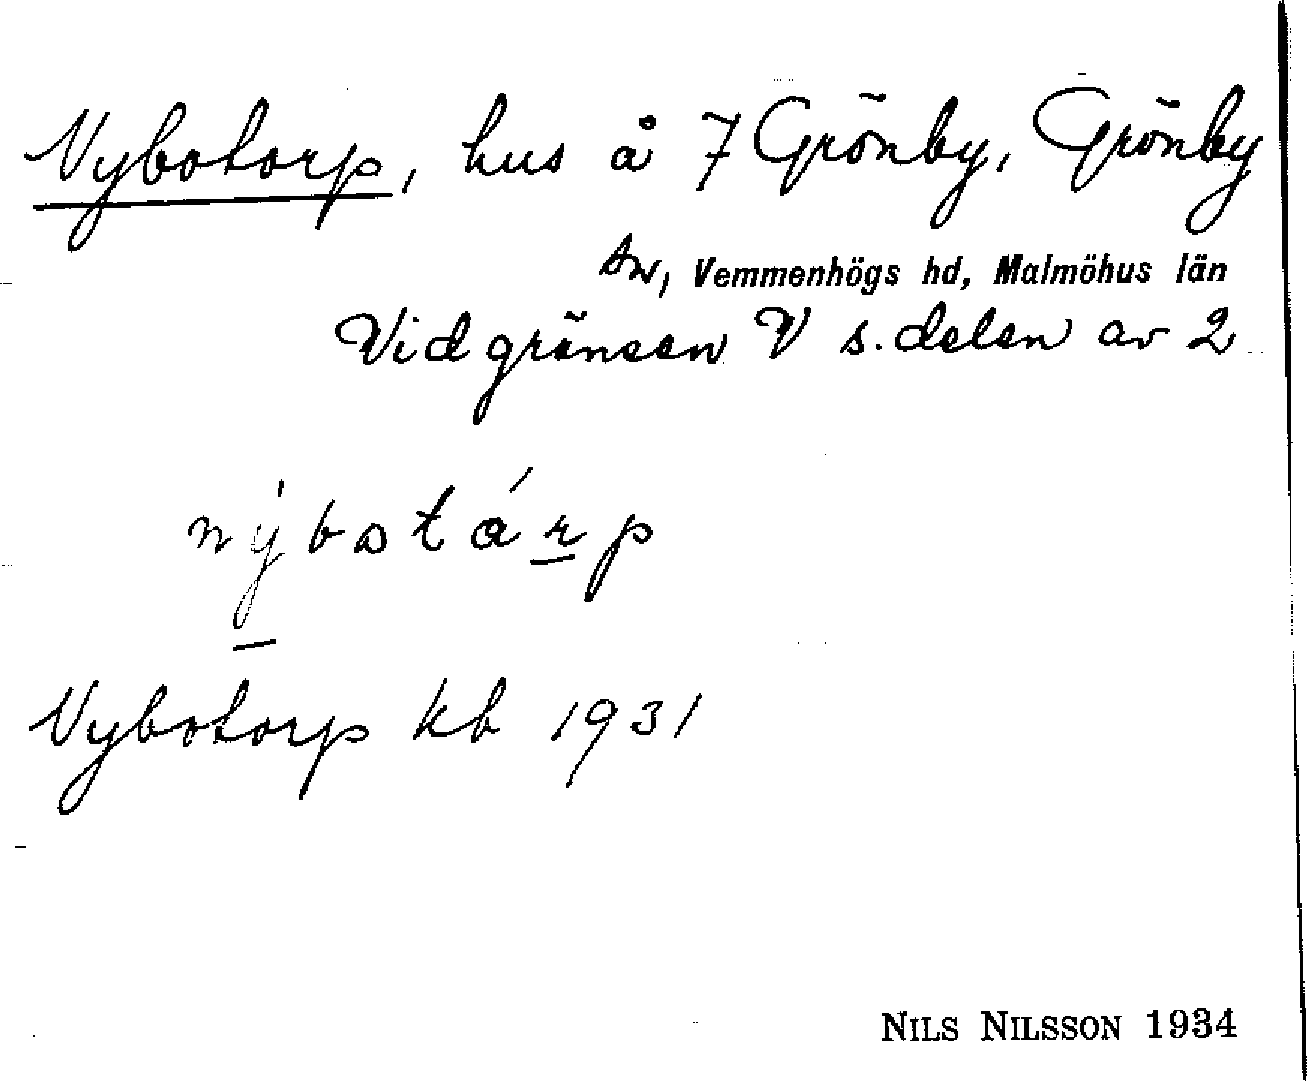 Nybotorp, hus å 7 Grönby, Grönby
sn, Vemmenhögs hd, Malmöhus län
Vid gränsen V s. delen av 2
n ý b o t á r p
Nybotorp kb 1931
NILS NILSSON 1934